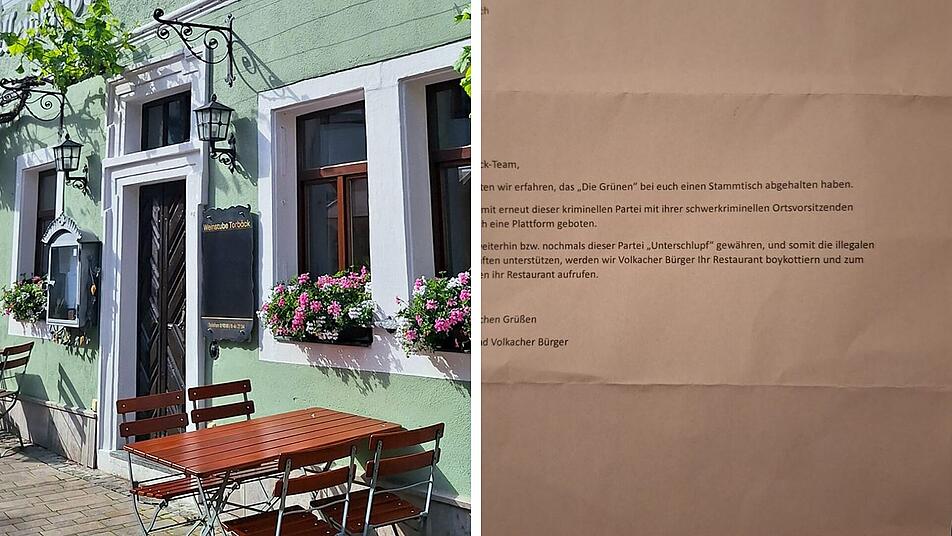 Weinstube Torbäck
ch
ck-Team,
ten wir erfahren, das „Die Grünen“ bei euch einen Stammtisch abgehalten haben.
mit erneut dieser kriminellen Partei mit ihrer schwerkriminellen Ortsvorsitzenden
h eine Plattform geboten.
weiterhin bzw. nochmals dieser Partei „Unterschlupf“ gewähren, und somit die illegalen
ften unterstützen, werden wir Volkacher Bürger Ihr Restaurant boykottiern und zum
en ihr Restaurant aufrufen.
chen Grüßen
nd Volkacher Bürger